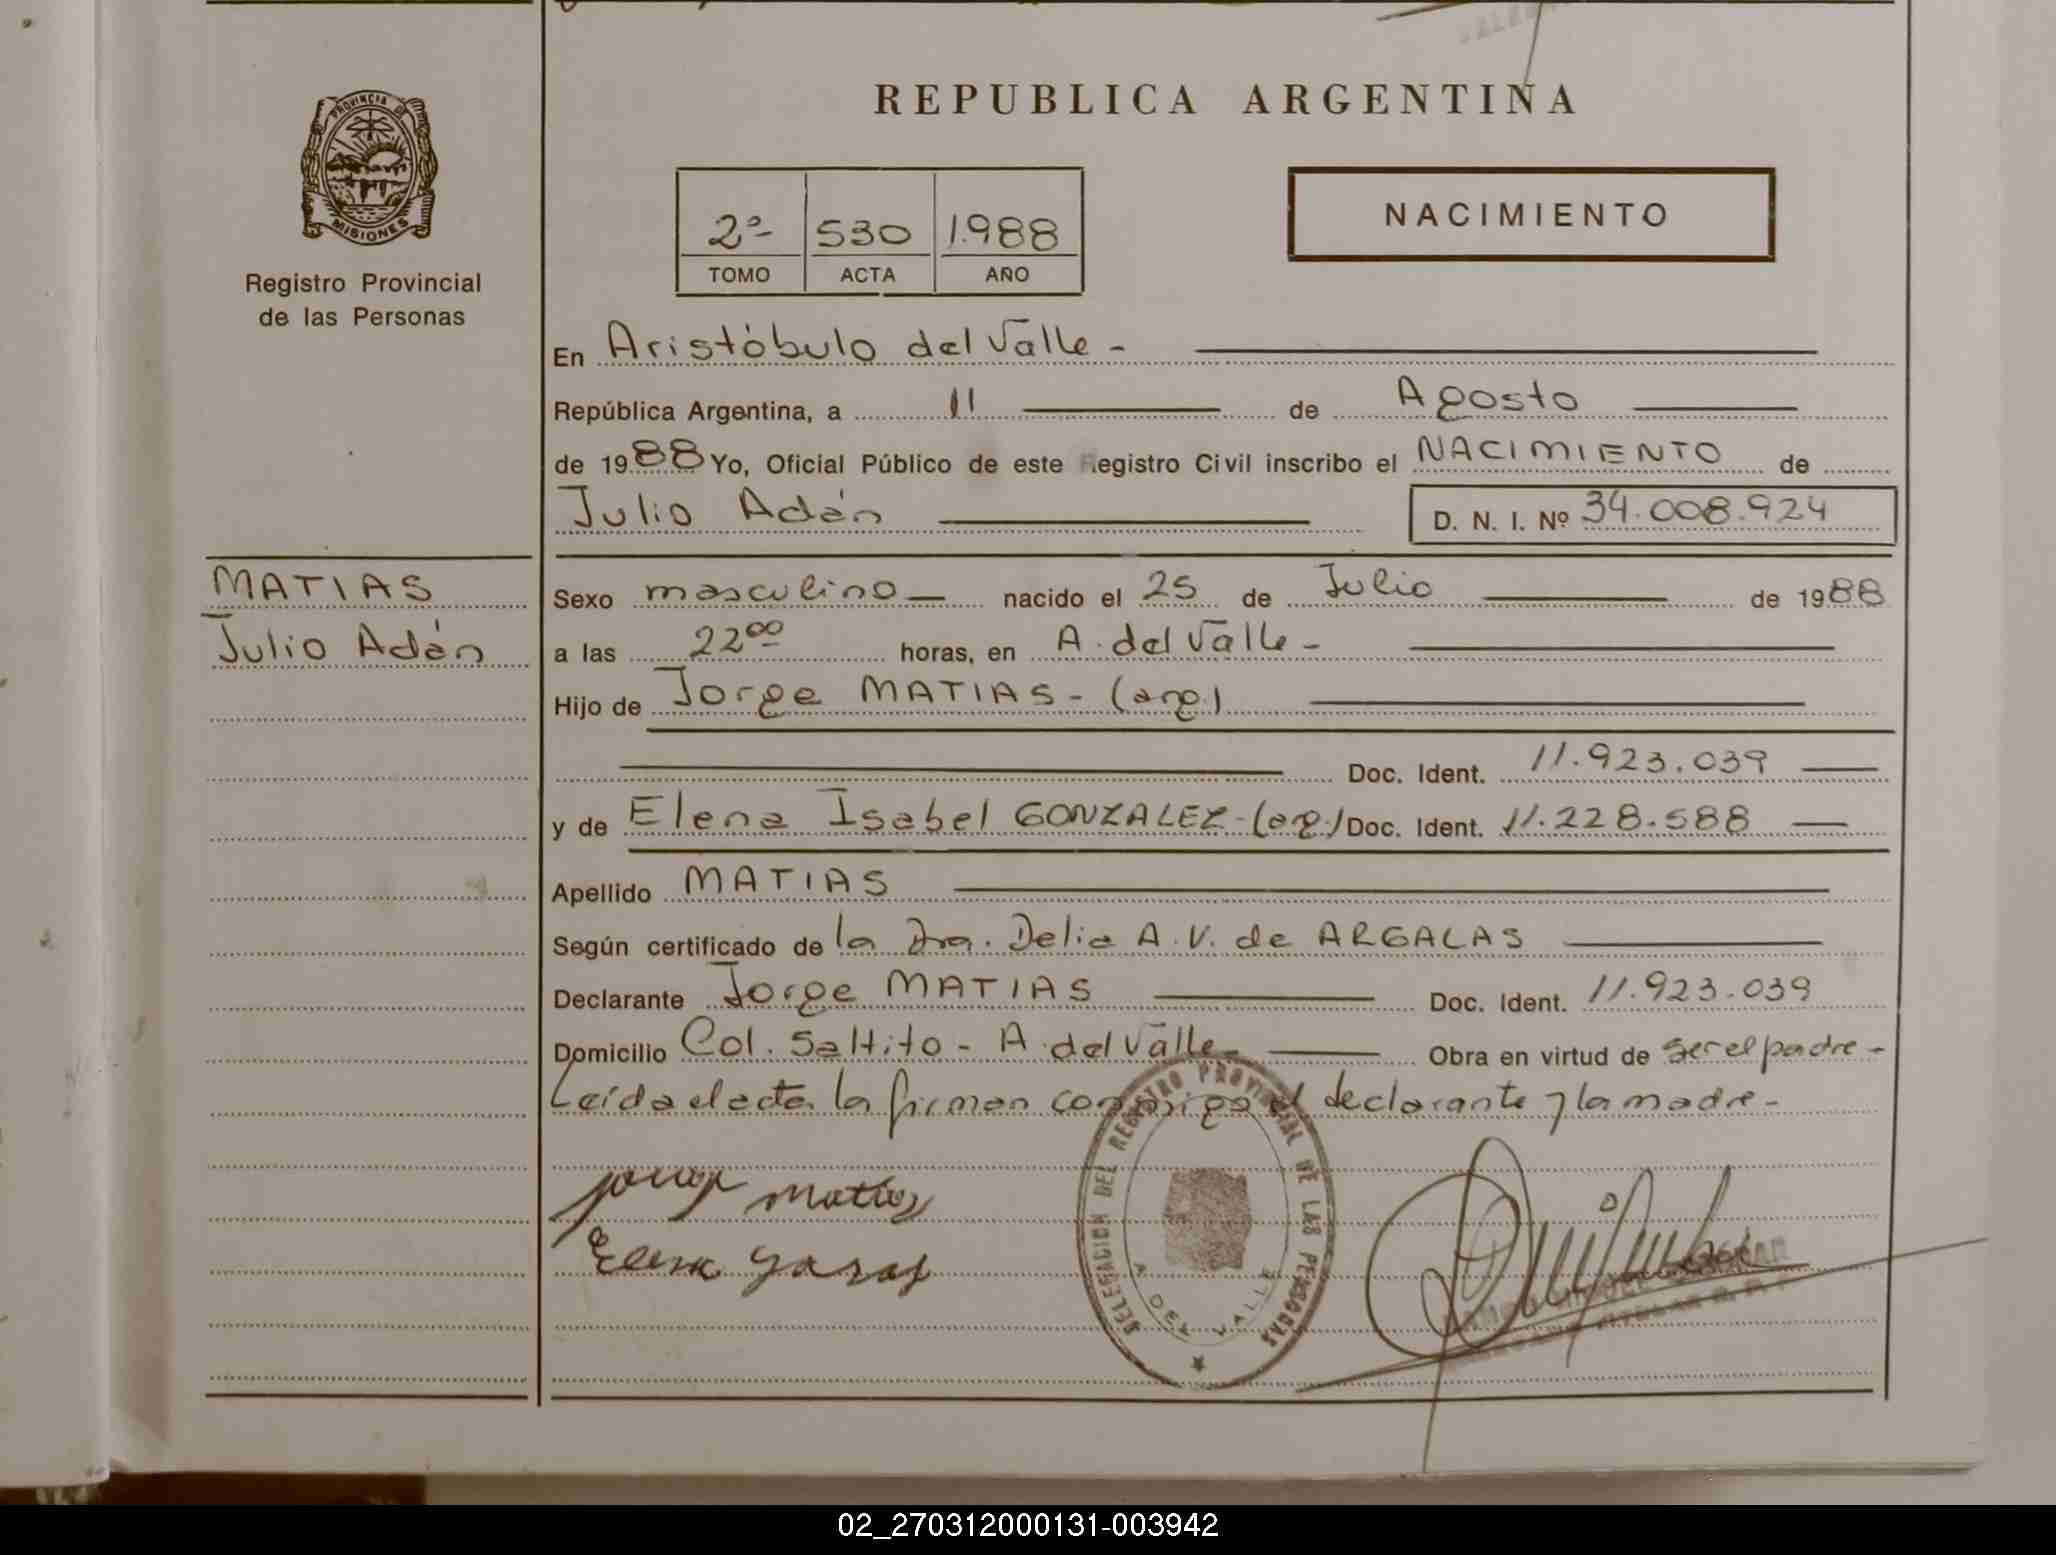 REPUBLICA ARGENTINA
PROVINCIA DE
MISIONES
Registro Provincial
de las Personas
2ª- 530 1.988
TOMO ACTA AÑO
NACIMIENTO
En Aristóbulo del Valle -
República Argentina, a 11 de Agosto
de 1988 Yo, Oficial Público de este Registro Civil inscribo el NACIMIENTO de
Julio Adán D. N. I. Nº 34.008.924
MATIAS
Julio Adán
Sexo masculino nacido el 25 de Julio de 1988
a las 22⁰⁰ horas, en A. del Valle -
Hijo de Jorge MATIAS - (arg.)
Doc. Ident. 11.923.039
y de Elena Isabel GONZALEZ - (arg.) Doc. Ident. 11.228.588
Apellido MATIAS
Según certificado de la Dra. Delia A. V. de ARGALAS
Declarante Jorge MATIAS Doc. Ident. 11.923.039
Domicilio Col. Saltito - A. del Valle - Obra en virtud de ser el padre -
Leída el acta, la firman conmigo el declarante y la madre -
Jorge Matias
Elena
DELEGACION DEL REGISTRO PROVINCIAL DE LAS PERSONAS
A. DEL VALLE
02_270312000131-003942